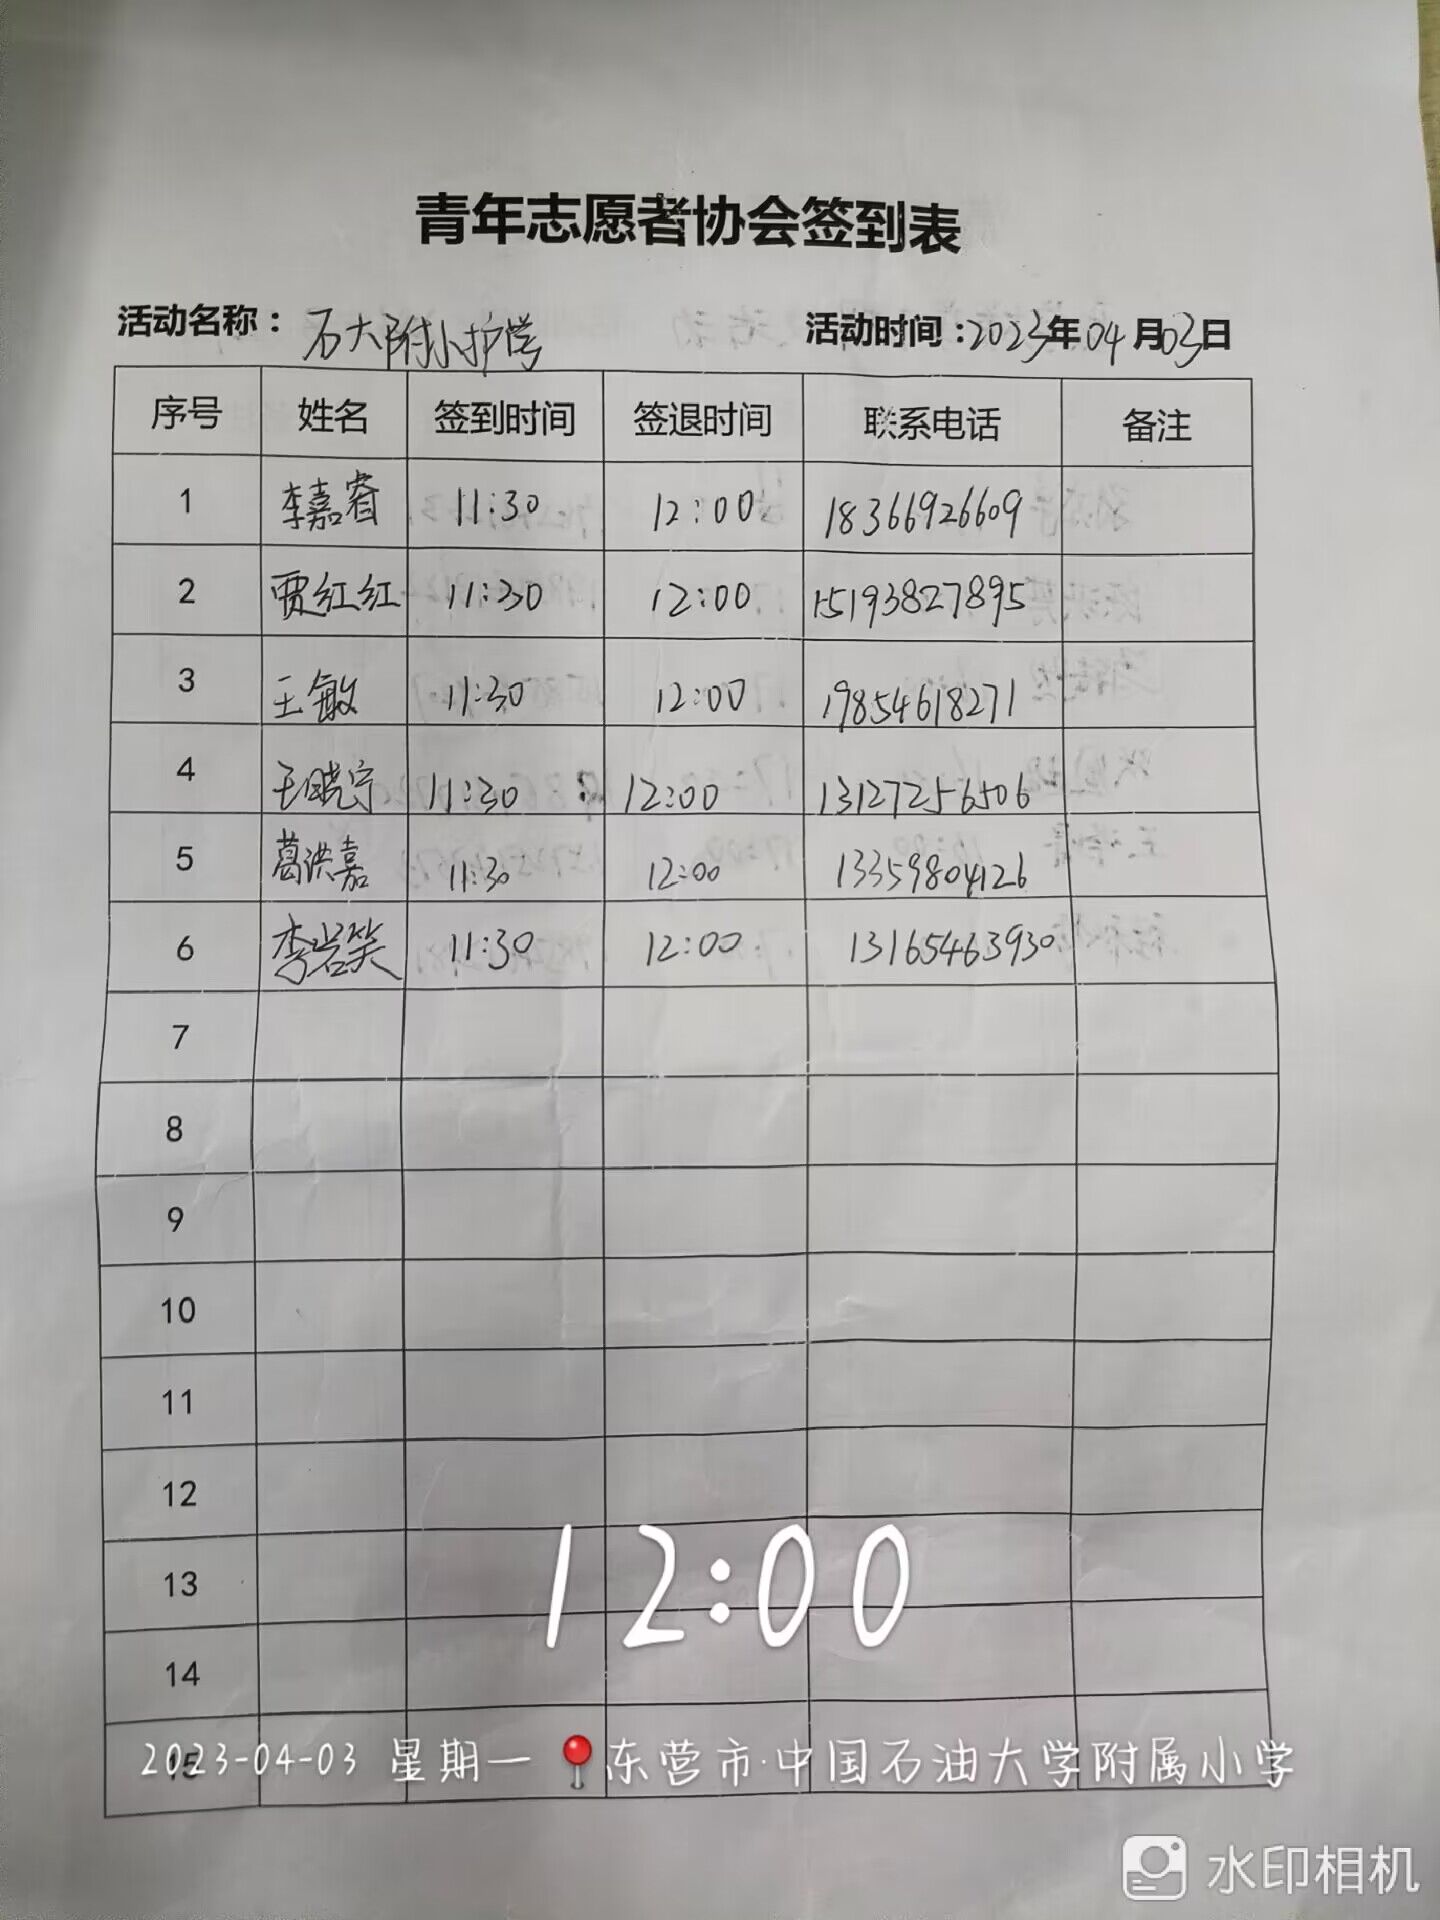 青年志愿者协会签到表
活动名称：石大附小护学 活动时间：2023年04月03日
序号 姓名 签到时间 签退时间 联系电话 备注
1 李嘉睿 11:30 12:00 18366926609
2 贾红红 11:30 12:00 15193827895
3 王敏 11:30 12:00 19854618271
4 王晓宁 11:30 12:00 13127256506
5 葛洪嘉 11:30 12:00 13359804126
6 李岩笑 11:30 12:00 13165463930
7
8
9
10
11
12
13
14
15
12:00
2023-04-03 星期一 东营市·中国石油大学附属小学
水印相机